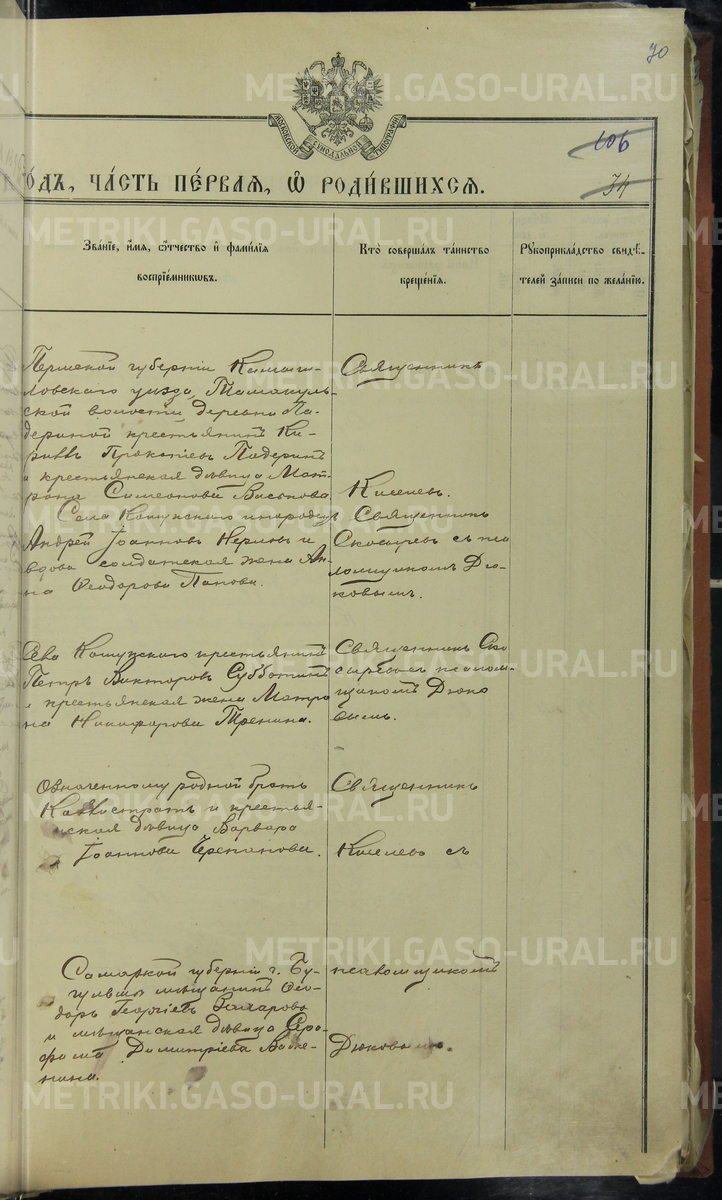 70
МОСКОВСКОЙ СѴНОДАЛЬНОЙ ТИПОГРАФІИ
106
34
ГО́ДЪ, ЧА́СТЬ ПЕ́РВАЯ, Ѽ РОДИ́ВШИХСЯ.
Зва́ніе, и҆́мя, ѻ҆́тчество и҆ фами́лія
воспріе́мниковъ.
Кто̀ соверша́лъ та́инство
креще́нія.
Рꙋкоприкла́дство свидѣ́-
телей за́писи по жела́нію.
Пермской губерніи Камыш-
ловскаго уѣзда, Тамакуль-
ской волости деревни Па-
дериной крестьянинъ Ки-
риллъ Прокопіевъ Падеринъ
и крестьянская дѣвица Мат-
рона Симеонова Васькова
Священникъ
Киселевъ.
Села Кошукскаго инородецъ
Андрей Іоанновъ и
вдова солдатская жена Ан-
на Ѳеодорова Попова.
Священникъ
Скосыревъ съ пса
ломщикомъ Дю-
ковымъ.
Села Кошукскаго крестьянинъ
Петръ Викторовъ Субботинъ
и крестьянская жена Матро
на Никифорова Тренина.
Священникъ Ско
сыревъ съ псалом-
щикомъ Дюко
вымъ.
Означенному родной братъ
Каллистратъ и крестья-
нская дѣвица Варвара
Іоаннова Черепанова.
Священникъ
Киселевъ съ
Самарской губерніи г. Бу-
гульмы мѣщанинъ Ѳео-
доръ Георгіевъ Захаровъ
и мѣщанская дѣвица Сера-
фима Димитріева
псаломщикомъ
Дюковымъ.
METRIKI.GASO-URAL.RU